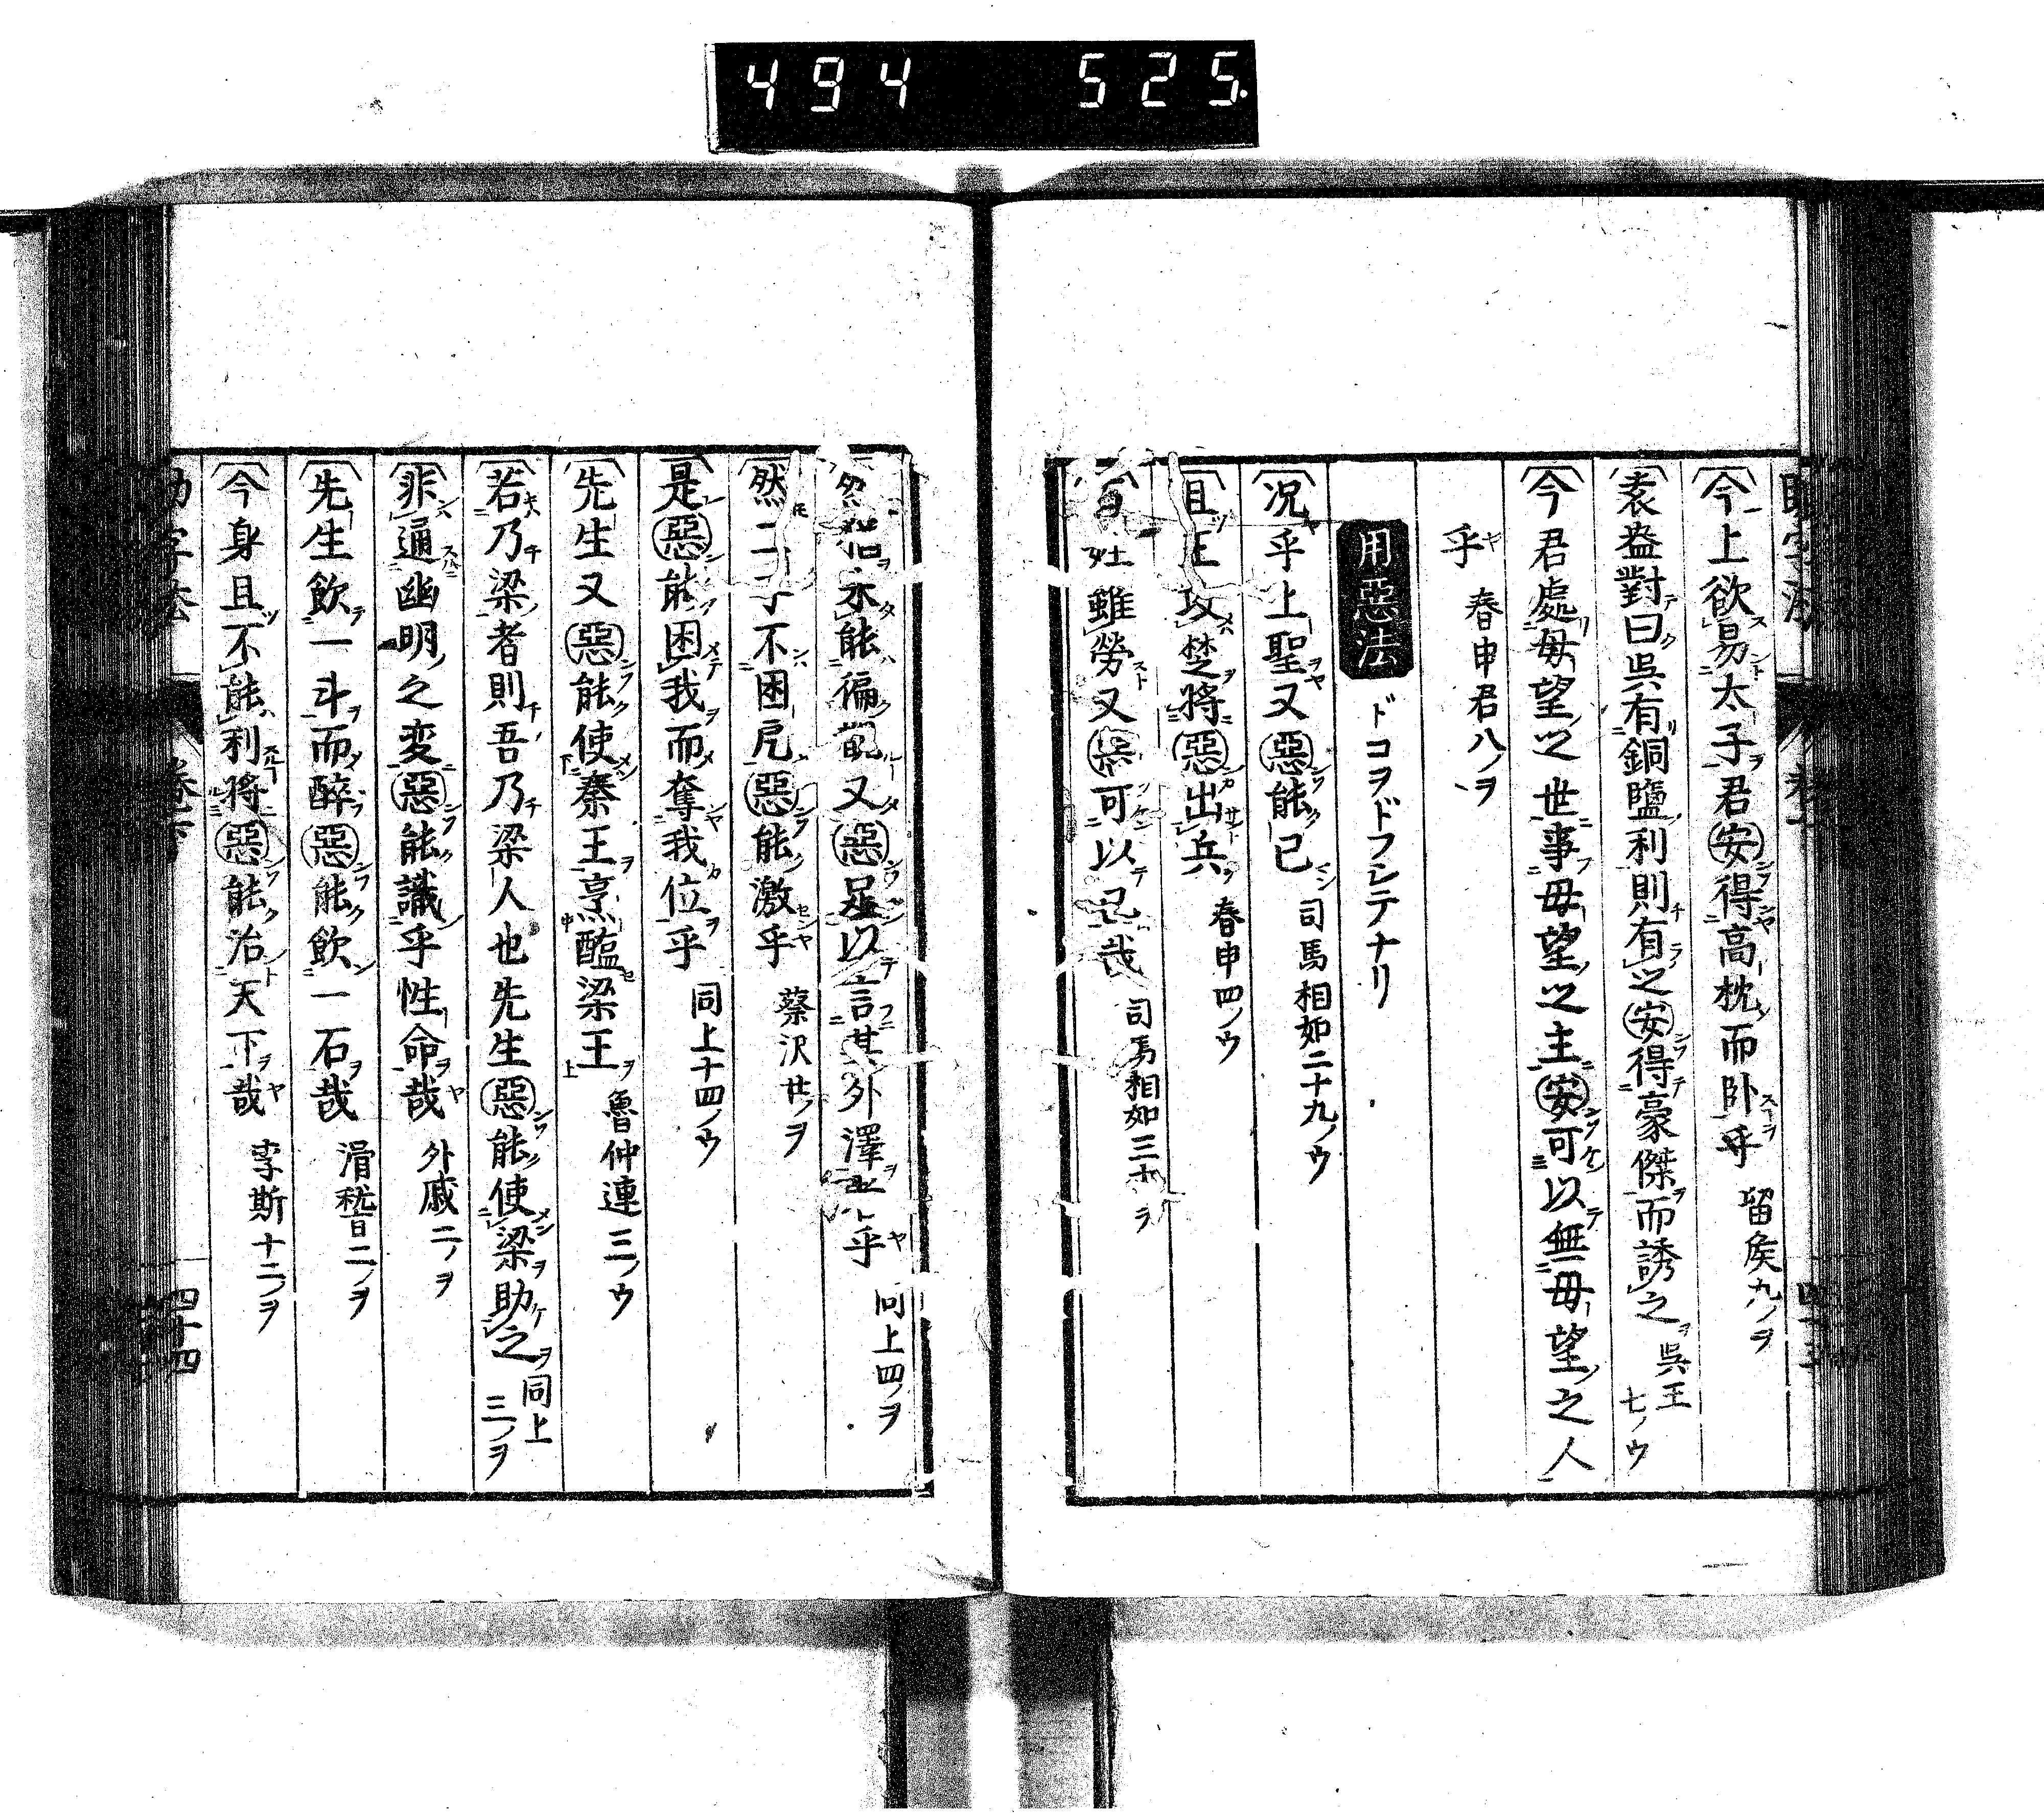 494 525
今上欲易太子君安得高枕而臥乎 留矦九ノヲ
袁盎對曰吳有銅鹽利則有之安得豪傑而誘之 吳王七ノウ
今君處毋望之世事毋望之主安可以無毋望之人
乎 春申君八ノヲ
用惡法 ドコヲドフシテナリ
况乎上聖又惡能已 司馬相如二十九ノウ
且王攻楚將惡出兵 春申四ノウ
雖勞又可以已哉 司馬相如三十
能徧又惡足以言其外澤乎 同上四ノヲ
然二子不困戹惡能激乎 蔡沢廿ノヲ
是惡能困我而奪我位乎 同上十四ノウ
先生又惡能使秦王烹醢梁王 魯仲連三ノウ
若乃梁者則吾乃梁人也先生惡能使梁助之 同上三ノヲ
非通幽明之変惡能識乎性命哉 外戚二ノヲ
先生飲一斗而醉惡能飲一石哉 滑稽二ノヲ
今身且不能利將惡能治天下哉 李斯十二ノヲ
四十四